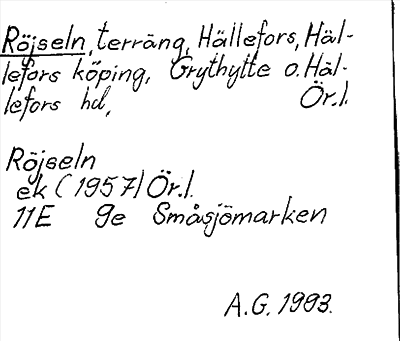 Röjseln, terräng, Hällefors, Häl-
lefors köping, Grythytte o. Häl-
lefors hd, Ör.l.
Röjseln
ek (1957) Ör.l.
11E 9e Småsjömarken
A.G. 1993.